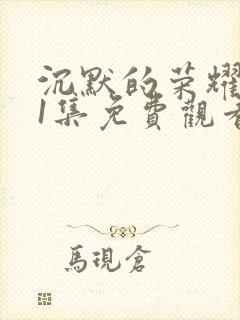 沉默的荣耀
1集免費觀看
馬現倉